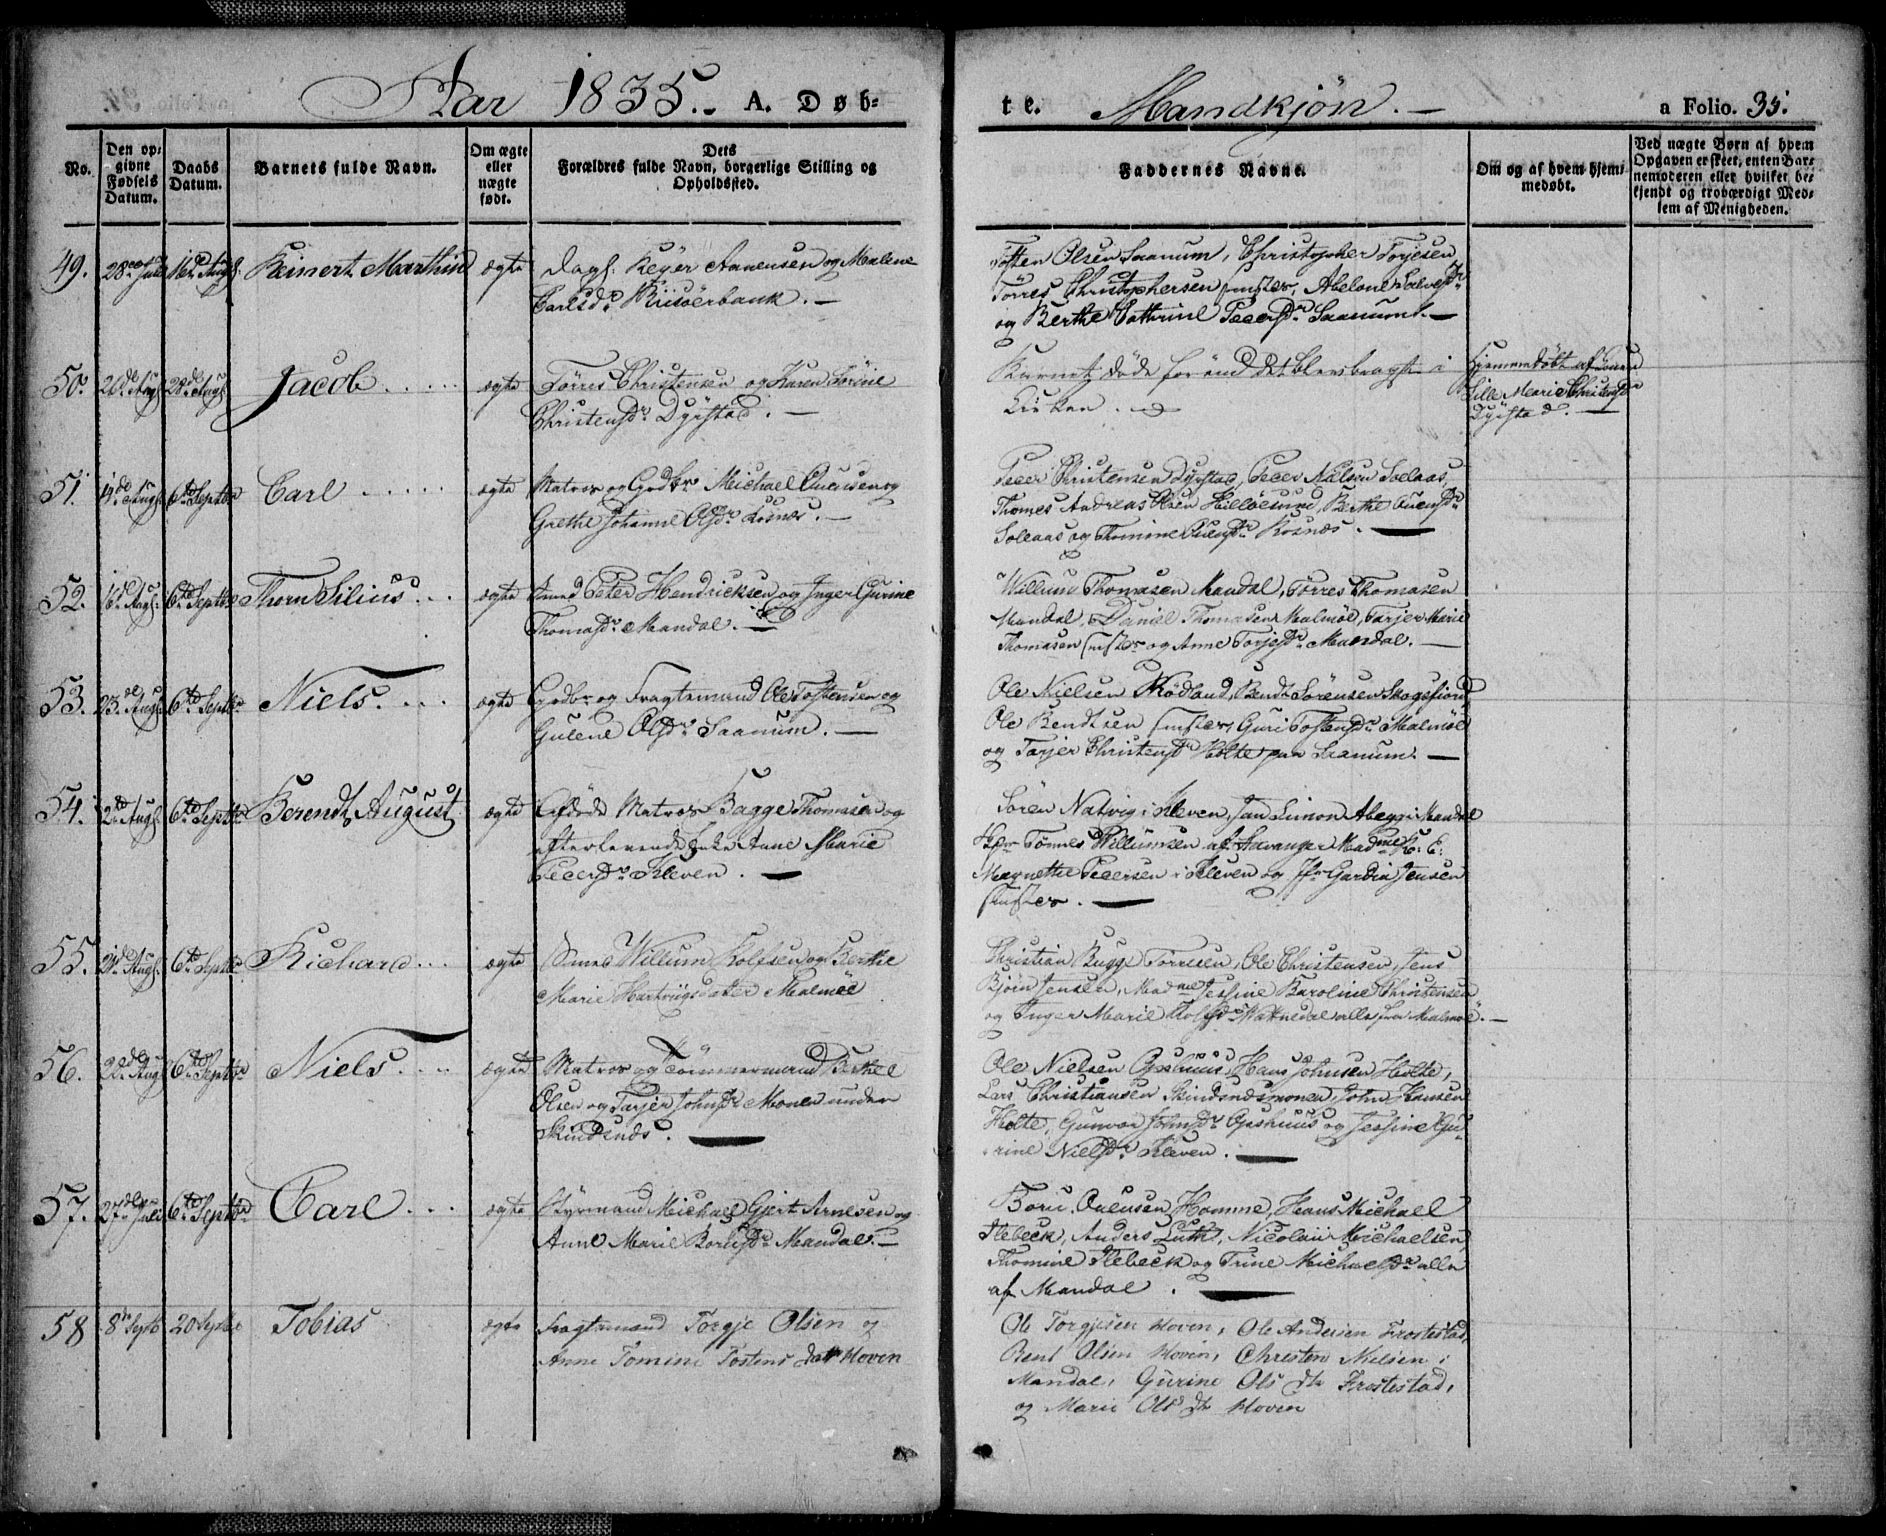 Aar 1835. A. Døb-
te. Mandkjøn. a Folio. 35.
No.
Den op-
givne
Fødsels
Datum.
Daabs
Datum.
Barnets fulde Navn.
Om ægte
eller
uægte
født.
Dets
Forældres fulde Navn, borgerlige Stilling og
Opholdssted.
Faddernes Navne.
Om og af hvem hjem-
medøbt.
Ved uægte Børn af hvem
Opgaven er skeet, enten Bar-
nemoderen eller hvilket be-
kjendt og troværdigt Med-
lem af Menigheden.
49. 28de Juli 16de Augs. Reinert Marthin ægte Dags. Reyer Aanensen og Malene
Carlsdr Riisöerbank.
Tosten Olsen Saanum, Christopher Torjesen
Törres Christophersen Abelone Salvesdr
og Berthe Cathrine Peersdr Saanum.
50. 26de Augs. 28de Augs. Jacob ægte Törres Christensen og Karen Sörine
Christensdr Dyrstad.
Barnet døde förend det blev bragt i
Kirken.
Hjemmedøbt af
Sille Marie Christensdr
Dyrstad.
51. 19de Augs. 6te Septbr Carl ægte Matros og Gdbr Michael Ouensen og
Grethe Johanne Olsdr Rosnæs.
Peer Christensen Dyrstad, Peer Nilsen Solaas,
Thomes Andreas Olsen Hillöesund, Berthe Ouensdr
Solaas og Thomine Ouensdr Rosnæs.
52. 16de Augs. 6te Septbr Thorn Silius ægte Peter Hendricksen og Inger Gurine
Thomasdr Mandal.
Willum Thomasen Mandal, Törres Thomasen
Mandal, Daniel Thomasen Malmöe, Tarjer Marie
Thomasen og Anne Torjesdr Mandal.
53. 23de Augs. 6te Septbr Niels ægte Gdbr og Fragtemand Ole Tostensen og
Gulene Olsdr Saanum.
Ole Nielsen Rödland, Bendt Sörensen Skogsfiord,
Ole Bendtsen Guri Tostensdr Malmöe
og Tarjer Christensdr Holte paa Saanum.
54. 2de Augs. 6te Septbr Berendt August ægte Afdöde Matros Bagge Thomasen og
efterlevende Enke Anne Marie
Peersdr Kleven.
Sören Natvig i Kleven, Jan Simon Abegg i Mandal
Tönnes Willumsen af Stavanger Madme K. E.
Magnethe Peersen i Kleven og Jfr Gardia Jensen
55. 21de Augs. 6te Septbr Richard ægte Smed Willum Rolfsen og Berthe
Marie Hartvigsdatter Malmöe
Christian Bugge Törresen, Ole Christensen, Jens
Bjørn Jensen, Madme Jessine Karoline Christensen
og Inger Marie Rolfsdr Wattnedal alle fra Malmöe.
56. 22de Augs. 6te Septbr Niels ægte Matros og Tömmermand Berthel
Olsen og Tarjer Johnsdr Monen under
Skindsnæs.
Ole Nielsen Opshuus, Hans Johnsen Holte,
Lars Christiansen Skindsnæsmonen, John Hansen
Holte, Gunvor Johnsdr Opshuus og Jessine Gu-
rine Nielsdr Kleven.
57. 27de Juli 6te Septbr Carl ægte Styrmand Michael Gjert Arnesen og
Anne Marie Borusdr Mandal.
Boru Ouensen Homme, Hans Michael
Flebeck, Anders Luth, Nicolaii Michaelsen,
Thomine Flebeck og Trine Michaelsdr alle
af Mandal.
58 8de Septb 20 Septbr Tobias ægte Fragtemand Torgje Olsen og
Anne Tomine Tostens datter Hoven
Ole Torgjesen Hoven, Ole Andersen Frostestad,
Bent Olsen Hoven, Christen Nielsen i
Mandal, Gurine Ols dtr Frostestad,
og Marie Ols dtr Hoven